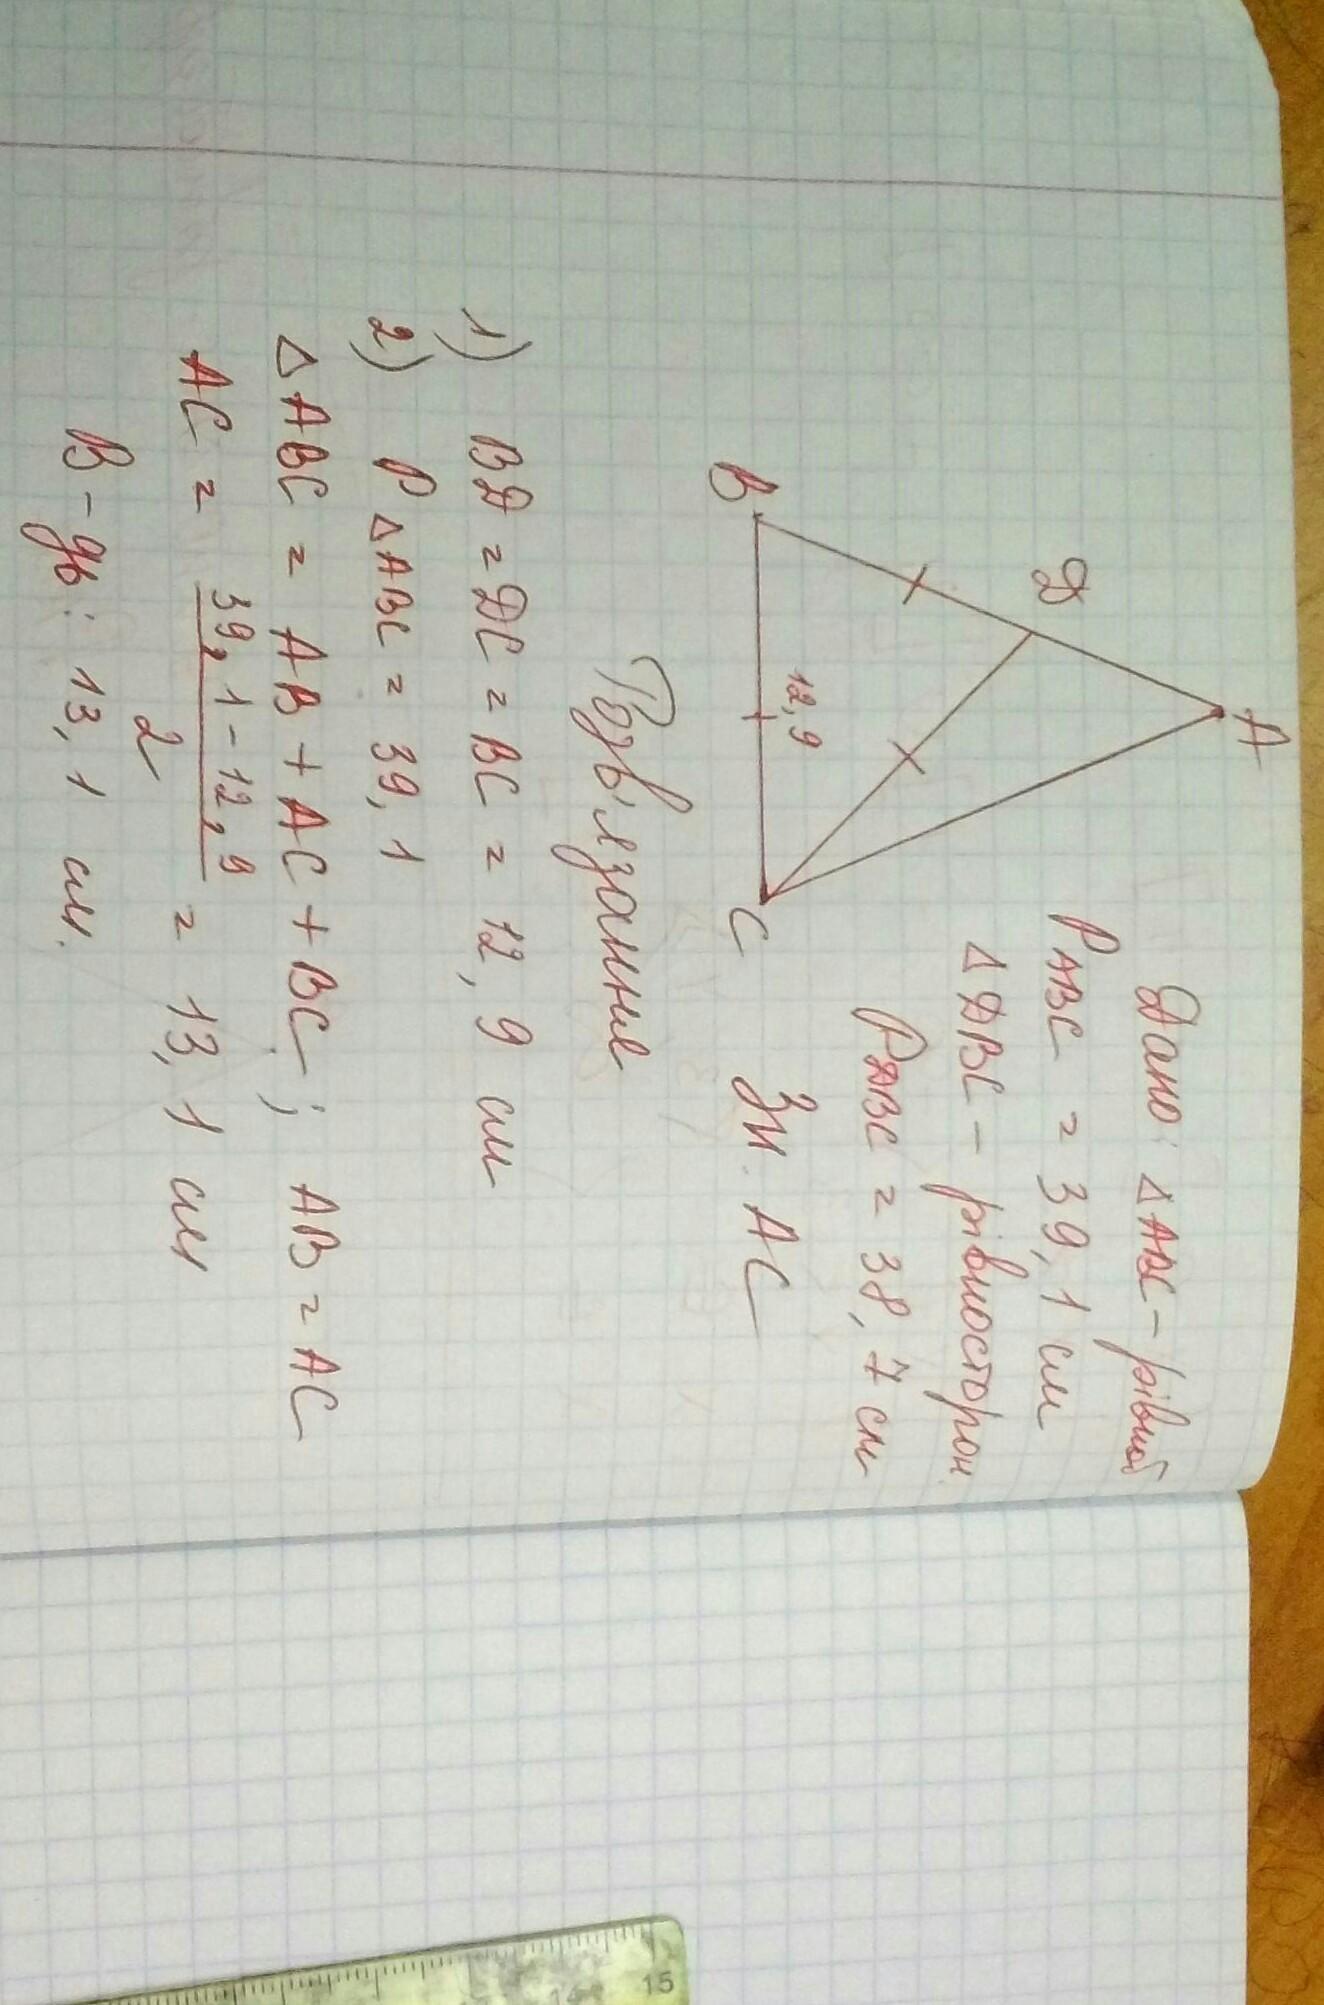 A
D
12,9
B
C
Дано: △ABC - рівноб
P ABC = 39,1 см
△DBC - рівносторон.
P DBC = 38,7 см
Зн. AC
Розв'язання
1) BD = DC = BC = 12,9 см
2) P △ABC = 39,1
△ABC = AB + AC + BC ; AB = AC
AC = 39,1 - 12,9 / 2 = 13,1 см
В-дь: 13,1 см.
15
14